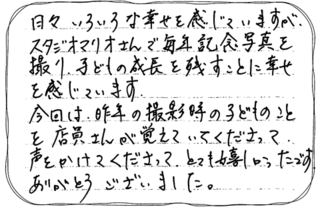 日々いろいろな幸せを感じていますが、
スタジオマリオさんで毎年記念写真を
撮り、子どもの成長を残すことに幸せ
を感じています。
今回は、昨年の撮影時の子どものこと
を店員さんが覚えていてくださって、
声をかけてくださって、とても嬉しかったです。
ありがとうございました。